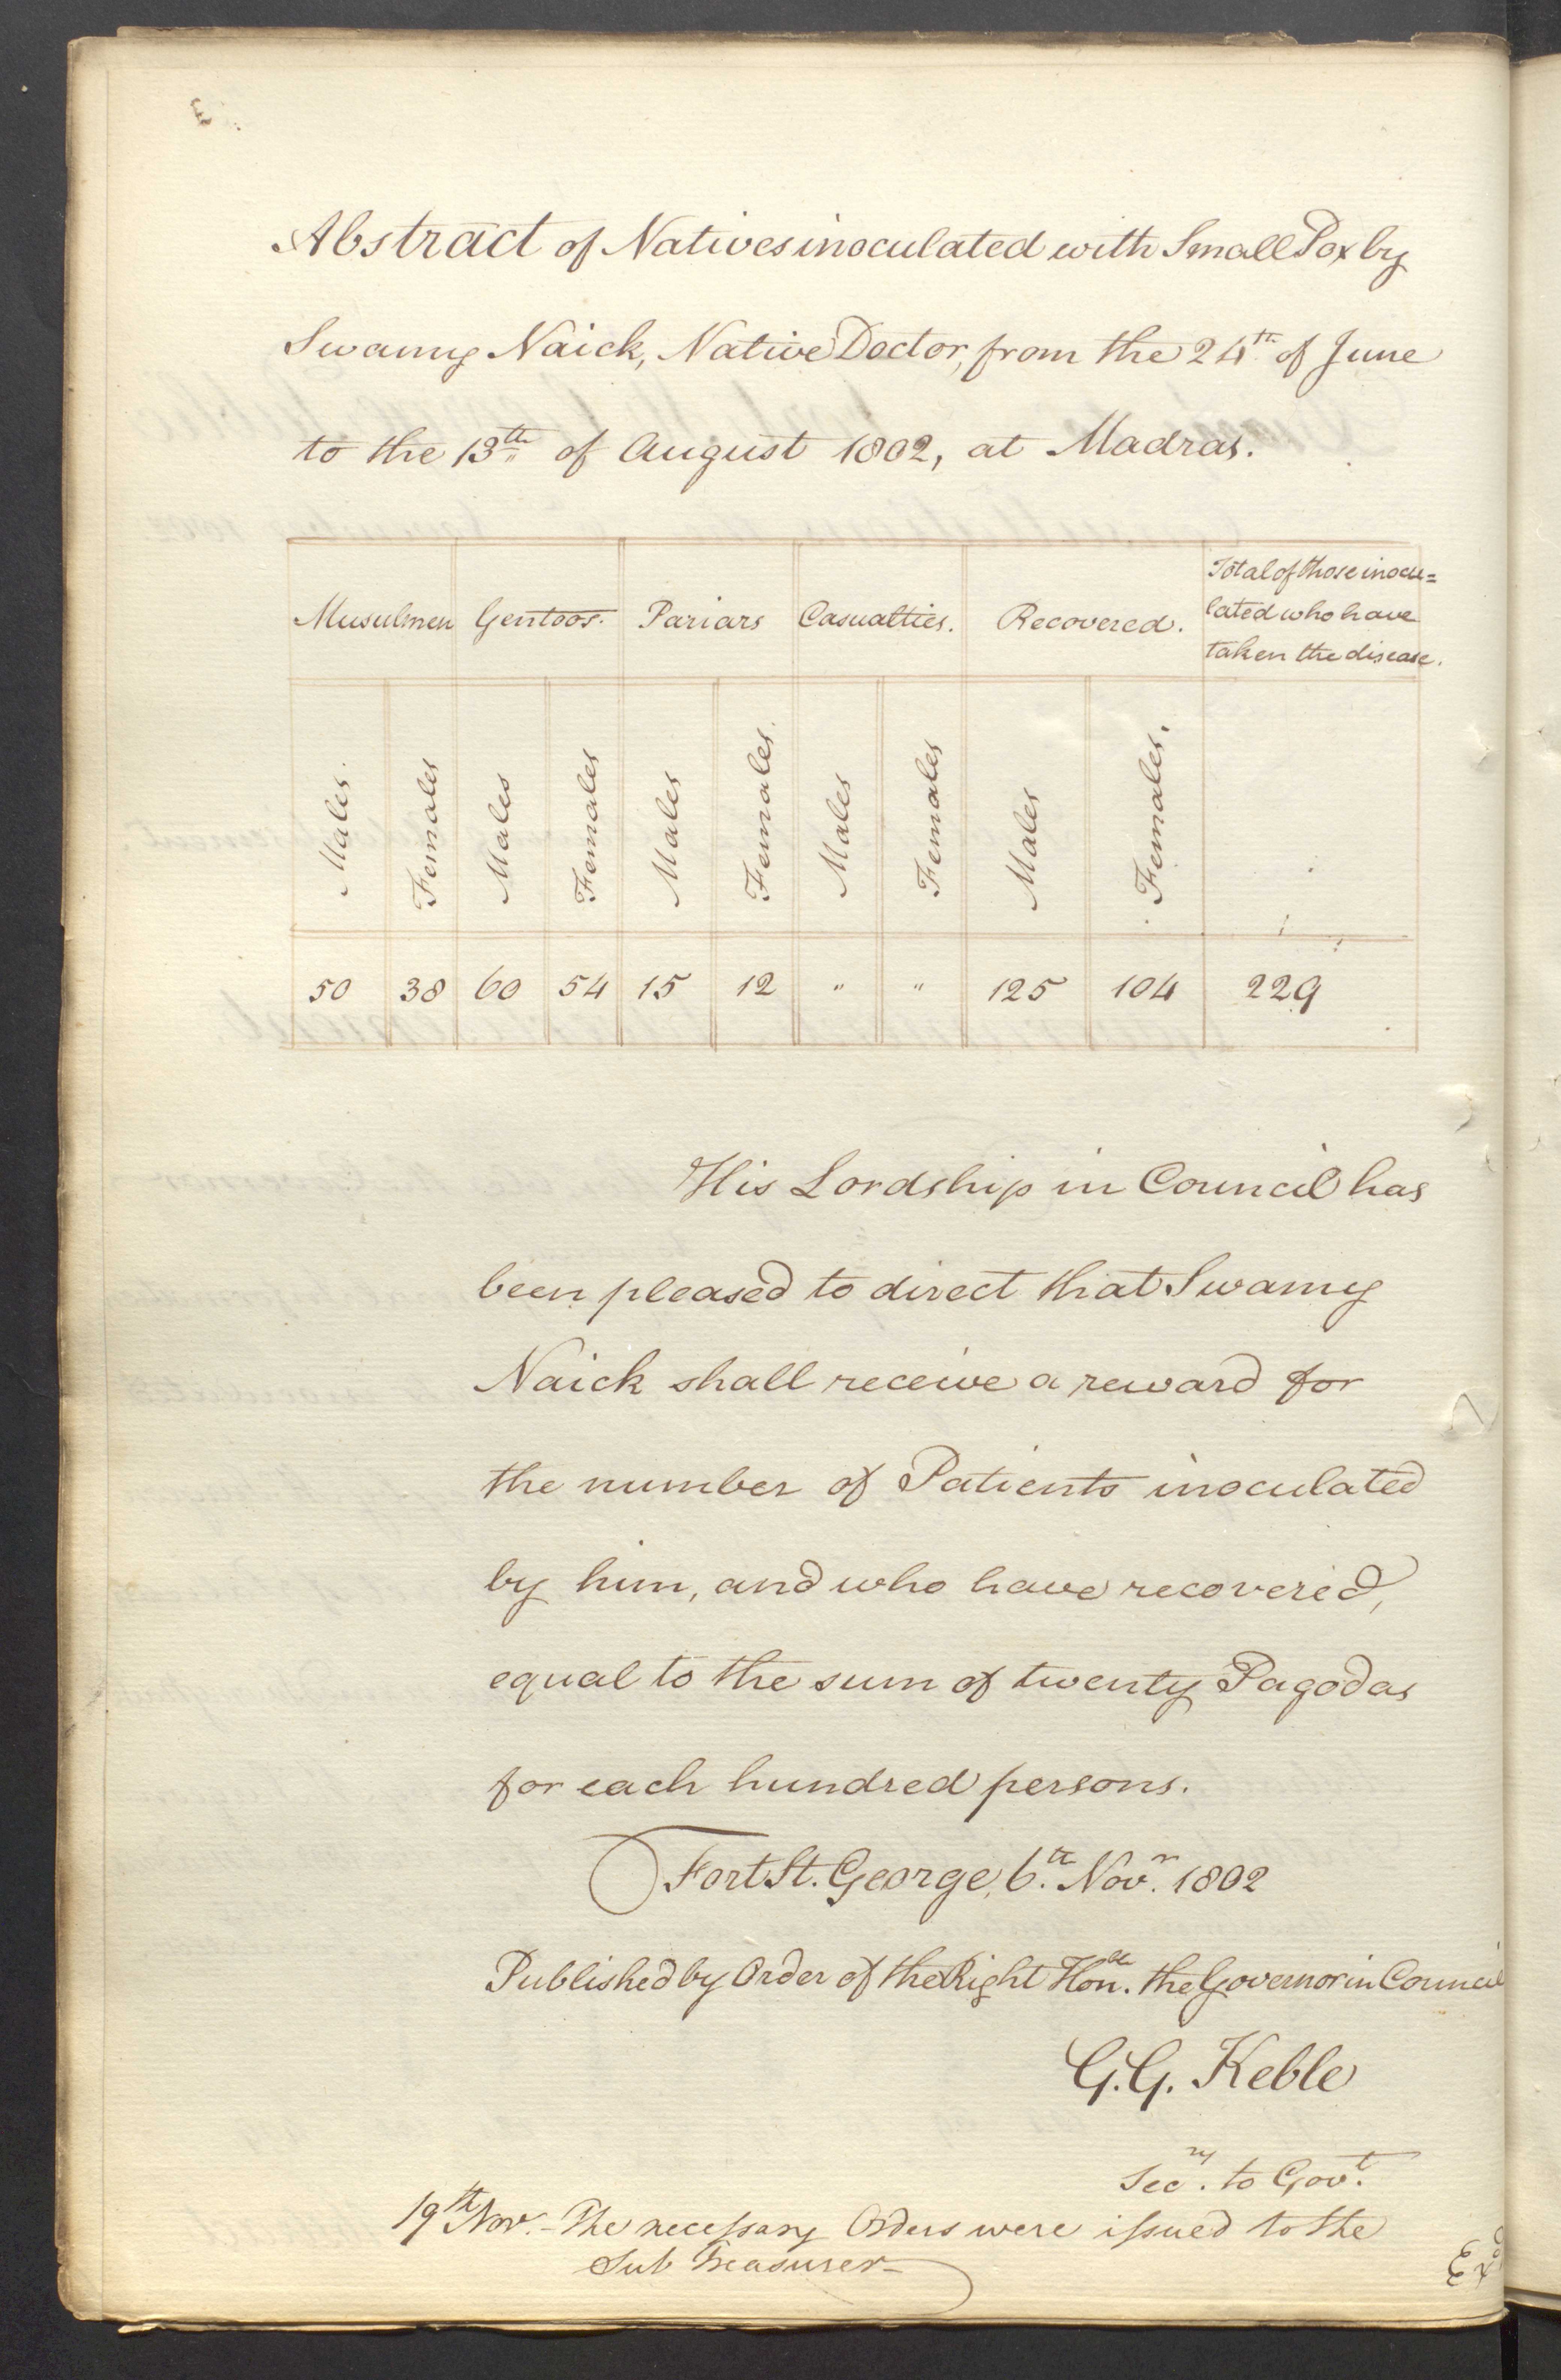 Abstract of Natives inoculated with Small Pox by
Swamy Naick, Native Doctor, from the 24th of June
to the 13th of August 1802, at Madras.
Musulmen Gentoos. Pariars Casualties. Recovered. Total of those inocu=
lated who have
taken the disease.
Males. Females Males Females Males Females. Males Females Males Females.
50 38 60 54 15 12 " " 125 104 229
His Lordship in Council has
been pleased to direct that Swamy
Naick shall receive a reward for
the number of Patients inoculated
by him, and who have recovered,
equal to the sum of twenty Pagodas
for each hundred persons.
Fort St. George, 6th. Novr. 1802
Published by Order of the Right Honble. the Governor in Council
G. G. Keble
Secry. to Govt.
19th Novr. - The necessary Orders were issued to the
Sub Treasurer -
Exd